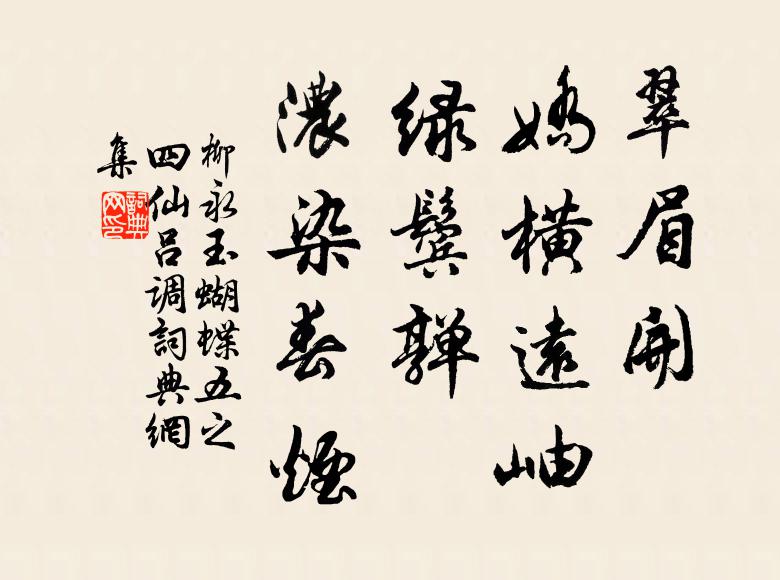 翠眉開
嬌橫遠岫
绿鬓嚲
濃染春煙
柳永玉蝴蝶五之
四仙吕调詞典網
集
詞典網印